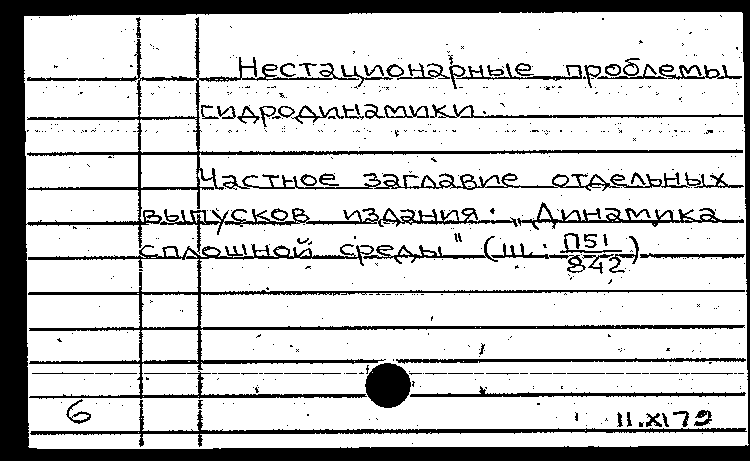 Нестационарные проблемы
гидродинамики.
Частное заглавие отдельных
выпусков издания: „Динамика
сплошной среды" (ш. П51/842)
6
11.XI79